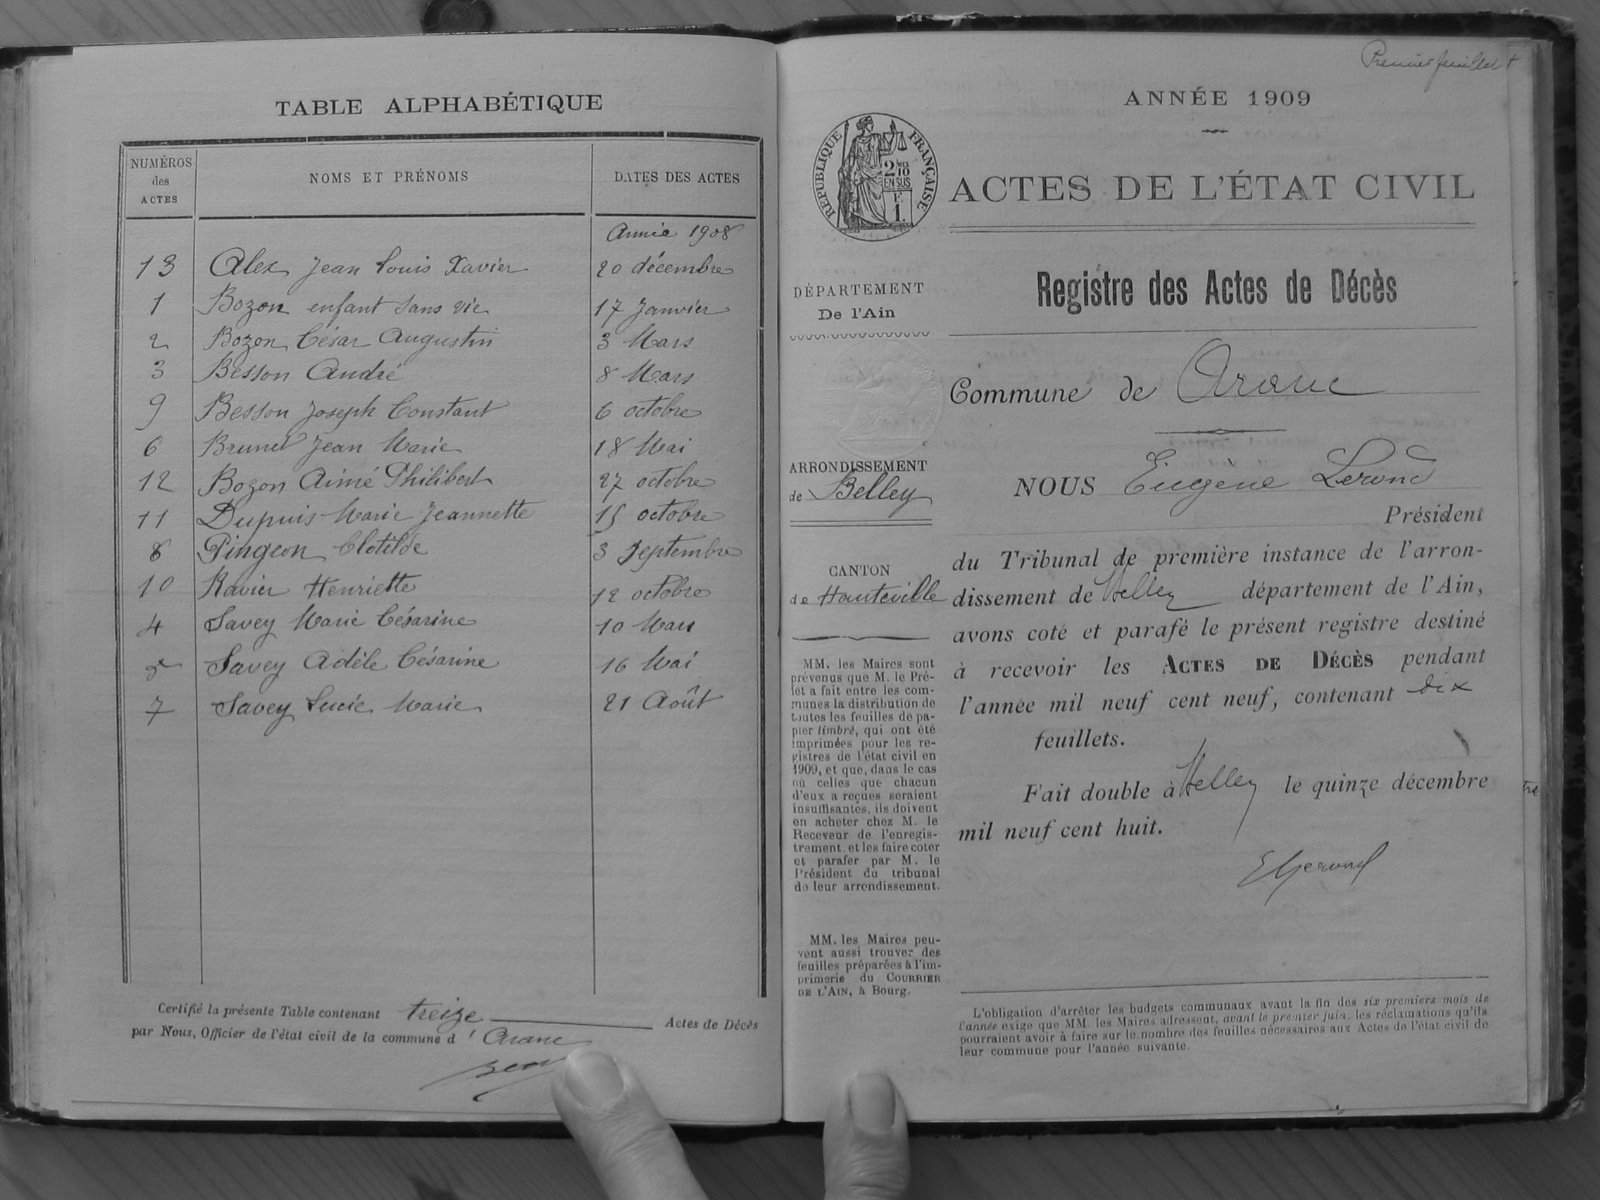 TABLE ALPHABÉTIQUE
NUMÉROS des ACTES
NOMS ET PRÉNOMS
DATES DES ACTES
Année 1908
13 Alex Jean Louis Xavier 20 décembre
1 Bozon enfant sans vie 17 Janvier
2 Bozon César Augustin 3 Mars
3 Besson André 8 Mars
9 Besson Joseph Constant 6 octobre
6 Brunet Jean Marie 18 Mai
12 Bozon Aimé Philibert 27 octobre
11 Dupuis Marie Jeannette 15 octobre
8 Pingeon Clotilde 3 Septembre
10 Ravier Henriette 12 octobre
4 Savey Marie Césarine 10 Mars
5 Savey Adèle Césarine 16 Mai
7 Savey Lucie Marie 21 Août
Certifié la présente Table contenant treize Actes de Décès
par Nous, Officier de l'état civil de la commune d'Aranc
Premier feuillet
ANNÉE 1909
RÉPUBLIQUE FRANÇAISE
2/10
EN SUS
F.
1.
ACTES DE L'ÉTAT CIVIL
DÉPARTEMENT
De l'Ain
Registre des Actes de Décès
Commune de Aranc
ARRONDISSEMENT
de Belley
CANTON
de Hauteville
MM. les Maires sont
prévenus que M. le Pré-
fet a fait entre les com-
munes la distribution de
toutes les feuilles de pa-
pier timbré, qui ont été
imprimées pour les re-
gistres de l'état civil en
1909, et que, dans le cas
où celles que chacun
d'eux a reçues seraient
insuffisantes, ils doivent
en acheter chez M. le
Receveur de l'enregis-
trement et les faire coter
et parafer par M. le
Président du tribunal
de leur arrondissement.
MM. les Maires peu-
vent aussi trouver des
feuilles préparées à l'im-
primerie du COURRIER
DE L'AIN, à Bourg.
NOUS Eugène Gerond
Président
du Tribunal de première instance de l'arron-
dissement de Belley département de l'Ain,
avons coté et parafé le présent registre destiné
à recevoir les ACTES DE DÉCÈS pendant
l'année mil neuf cent neuf, contenant dix
feuillets.
Fait double à Belley le quinze décembre
mil neuf cent huit.
EGerond
L'obligation d'arrêter les budgets communaux avant la fin des six premiers mois de
l'année exige que MM. les Maires adressent, avant le premier juin, les réclamations qu'ils
pourraient avoir à faire sur le nombre des feuilles nécessaires aux Actes de l'état civil de
leur commune pour l'année suivante.